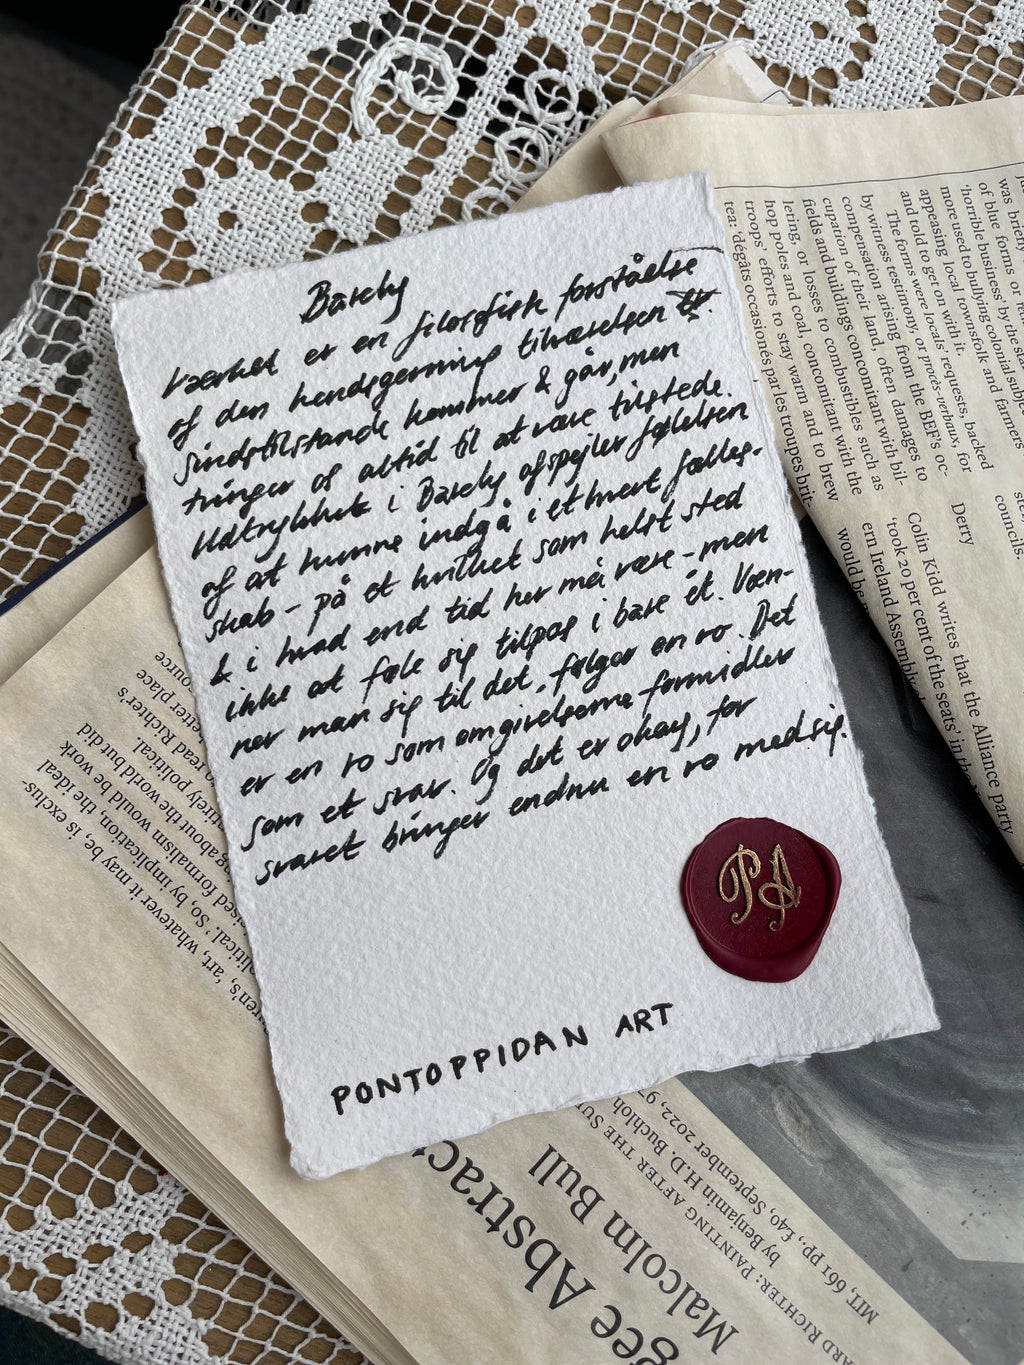 Barely
Værket er en filosofisk forståelse
af den handsgerning tilværelsen er.
Sindstilstande kommer & går, men
tvinger os altid til at være tilstede.
Udtrykket i Barely afspejler følelsen
af at kunne indgå i ethvert fælles-
skab - på et hvilket som helst sted
& i hvad end tid her må være - men
ikke at føle sig tilpas i bare ét. Væn-
ner man sig til det, følger en ro. Det
er en ro som omgivelserne formidler
som et svar. Og det er okay, for
svaret bringer endnu en ro med sig.
PA
PONTOPPIDAN ART
was briefly
of blue forms or
'horrible business' by the
more used to bullying colonial subje
appeasing local townsfolk and farmers
and hold to get on with it.
The forms were locals' requests, backed
by witness testimony, or procès-verbaux, for
compensation arising from the BEF's oc-
cupation of their land, often damages to
fields and buildings concomitant with bil-
leting, or losses to combustibles such as
hop poles and coal, concomitant with the
troops' efforts to stay warm and to brew
tea: 'dégâts occasionés par les troupes brit-
councils.
Derry
Colin Kidd writes that the Alliance party
'took 20 per cent of the seats' in the
ern Ireland Assembly
would be
source
etter place
o read Richter's
tirely political.
g about the world but did
cised formalism would be work
olitical.' So, by implication, the ideal
uren's, 'art, whatever it may be, is exclus-
gee Abstrac
Malcolm Bull
ARD RICHTER: PAINTING AFTER THE SU
by Benjamin H.D. Buchloh
MIT, 661 pp., £40, September 2022, 97